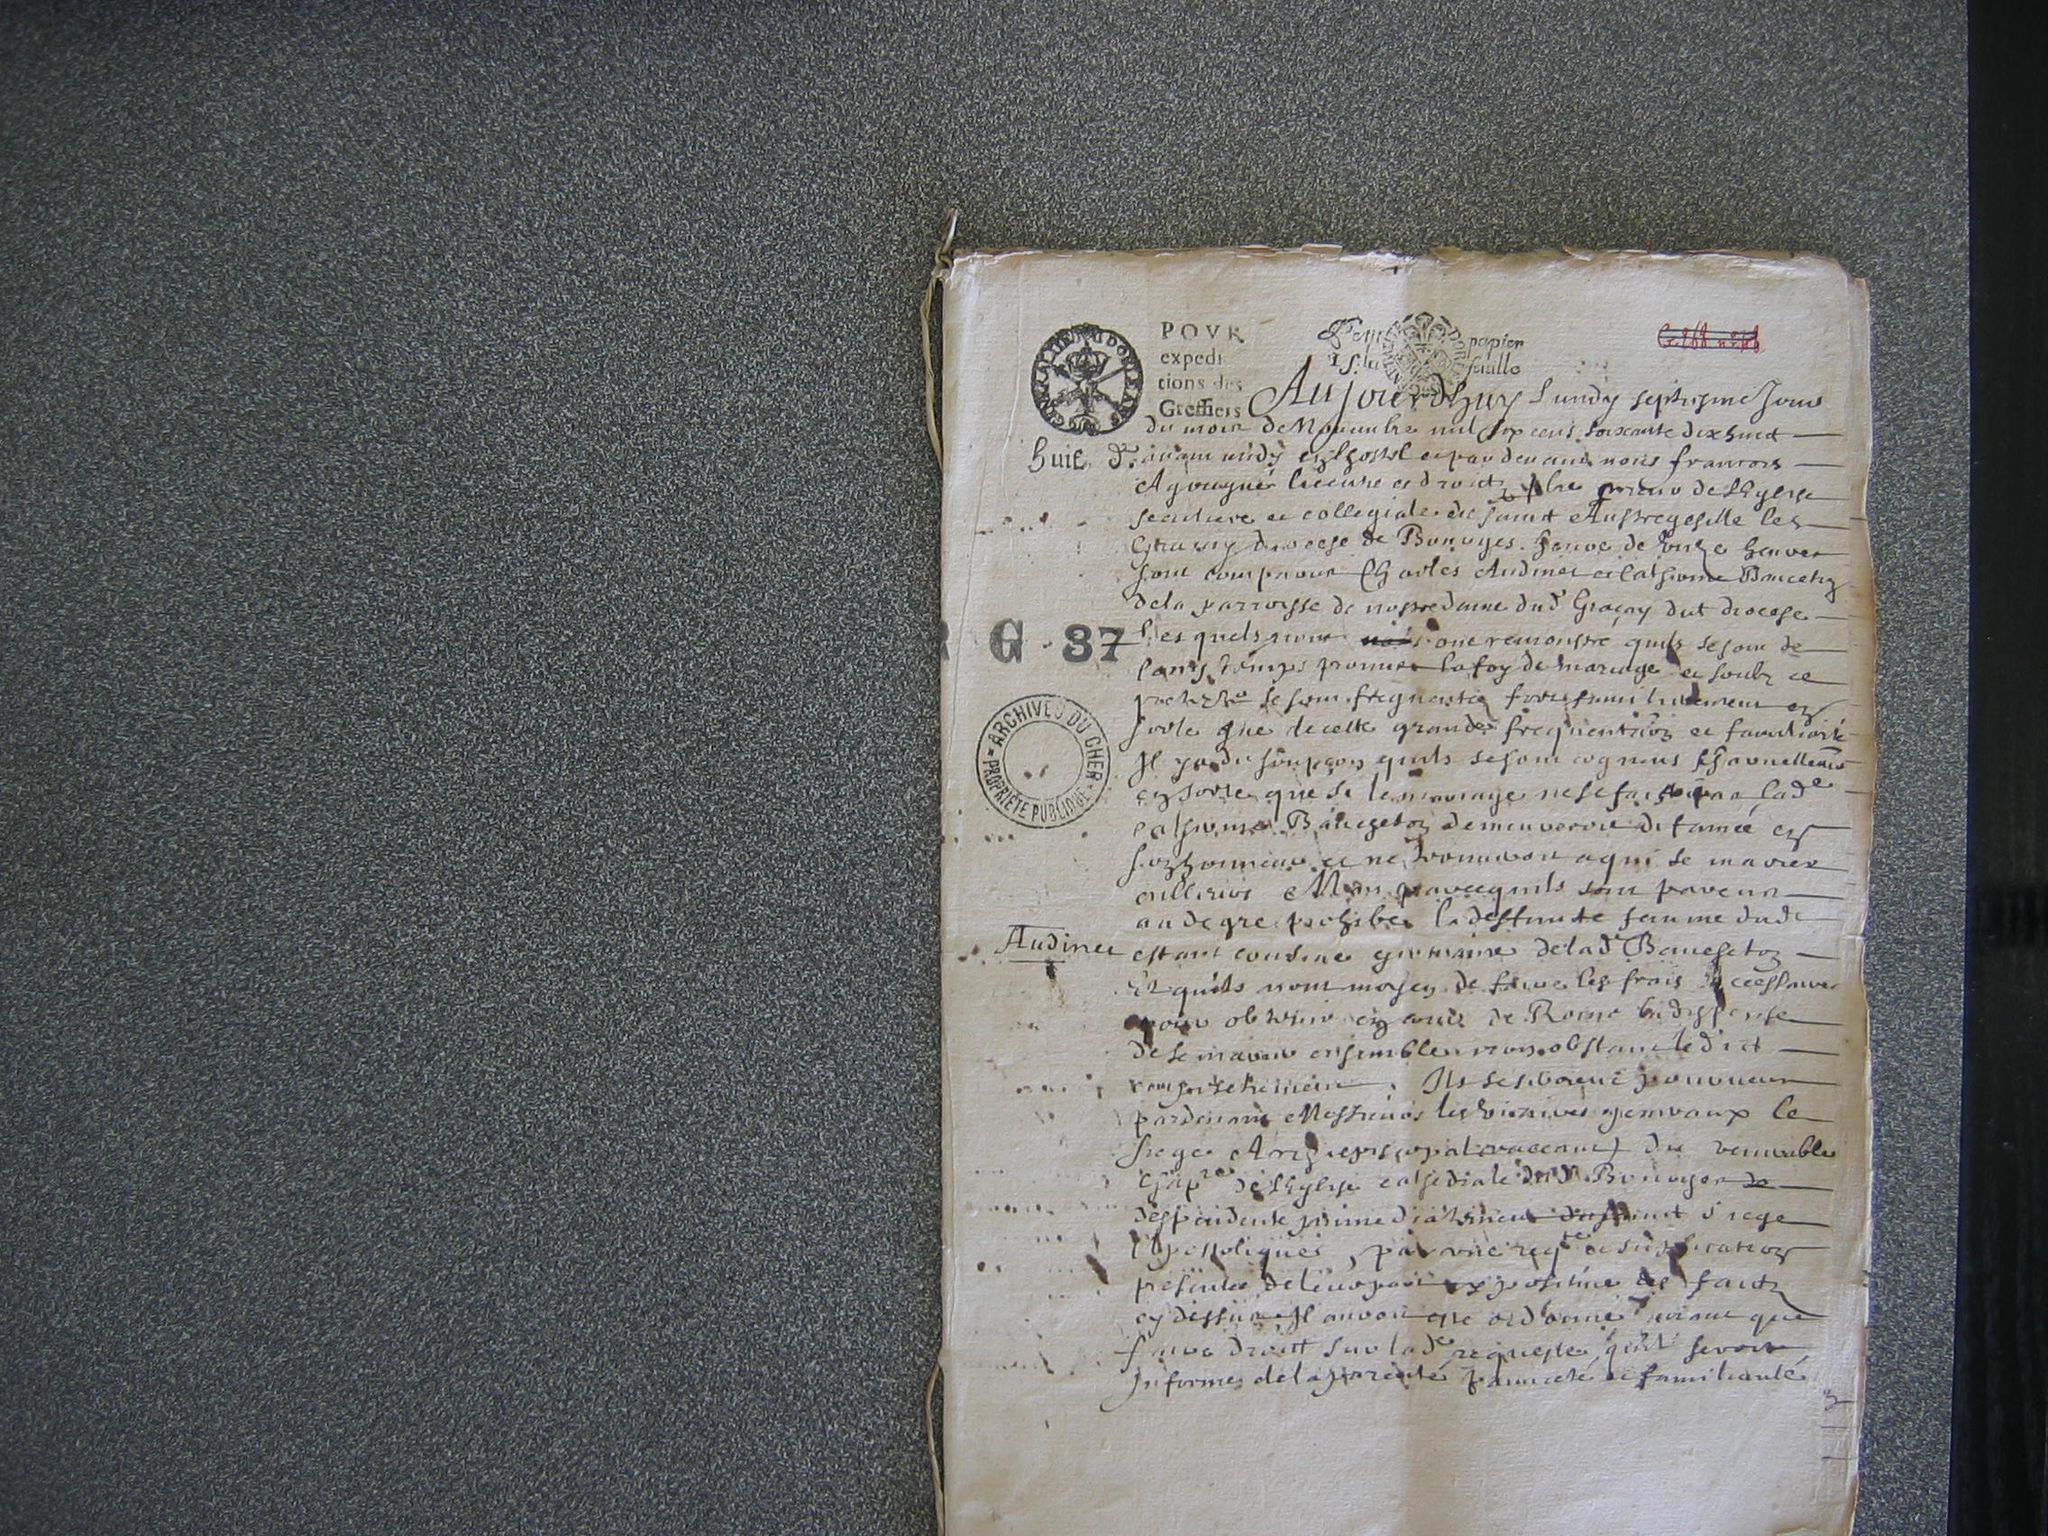 POVR
expedi
tions des
Greffiers
Petit papier
1 S. la fuille
GENERALITE D ORLEANS
Aujourdhuy Lundy septiesme Jour
du mois de Novembre mil six cens soixante dix huict
huit d. avant midy en lhostel et par devant nous francois
Agougué licentie es droictz pbre prieur de lEglise
seculiere et collegiale de Sainct Austregesille les
Graczay diocese de Bourges
sont comparus Charles Audinet et Catherine Bancheton
de la parroisse de nostre dame dud Graczay dict diocese
Lesquels nous ont remonstré quils se sont de
long temps promis la foy de mariage et soubz ce
se sont frequentez fort familierement en
sorte que de cette grande frequentation et familiarité
Il y a du soupçon quils se sont cognus charnellement
en sorte que si le mariage ne se faisoit lad^e
Catherine Bancheton demeureroit difamée et
et ne trouveroit a qui se marier
ailleurs Mais parcequils sont parens
au degre prohibé la deffuncte femme dud
Audinet
estant cousine germaine de lad Bancheton
Et quils nont moyen de faire les frais necessaires
pour obtenir en cour de Rome la dispense
de se marier ensemble non obstant le dict
empeschement. Ils se seroient pourveus
pardevant Messieurs les vicaires generaux le
siege Archiepiscopal vaccant du venerable
Chap^re de lEglise cathedralle dud Bourges
despendante immediatement du sainct siege
Apostolique, par une req^te et suplication
presentée de leur part expositive des faictz
cy dessus Il auroit esté ordonné avant que
faire droict sur lad^e requeste quil seroit
Informé de la parenté pauvreté et familiarité
R G 87
ARCHIVES DU CHER
PROPRIÉTÉ PUBLIQUE